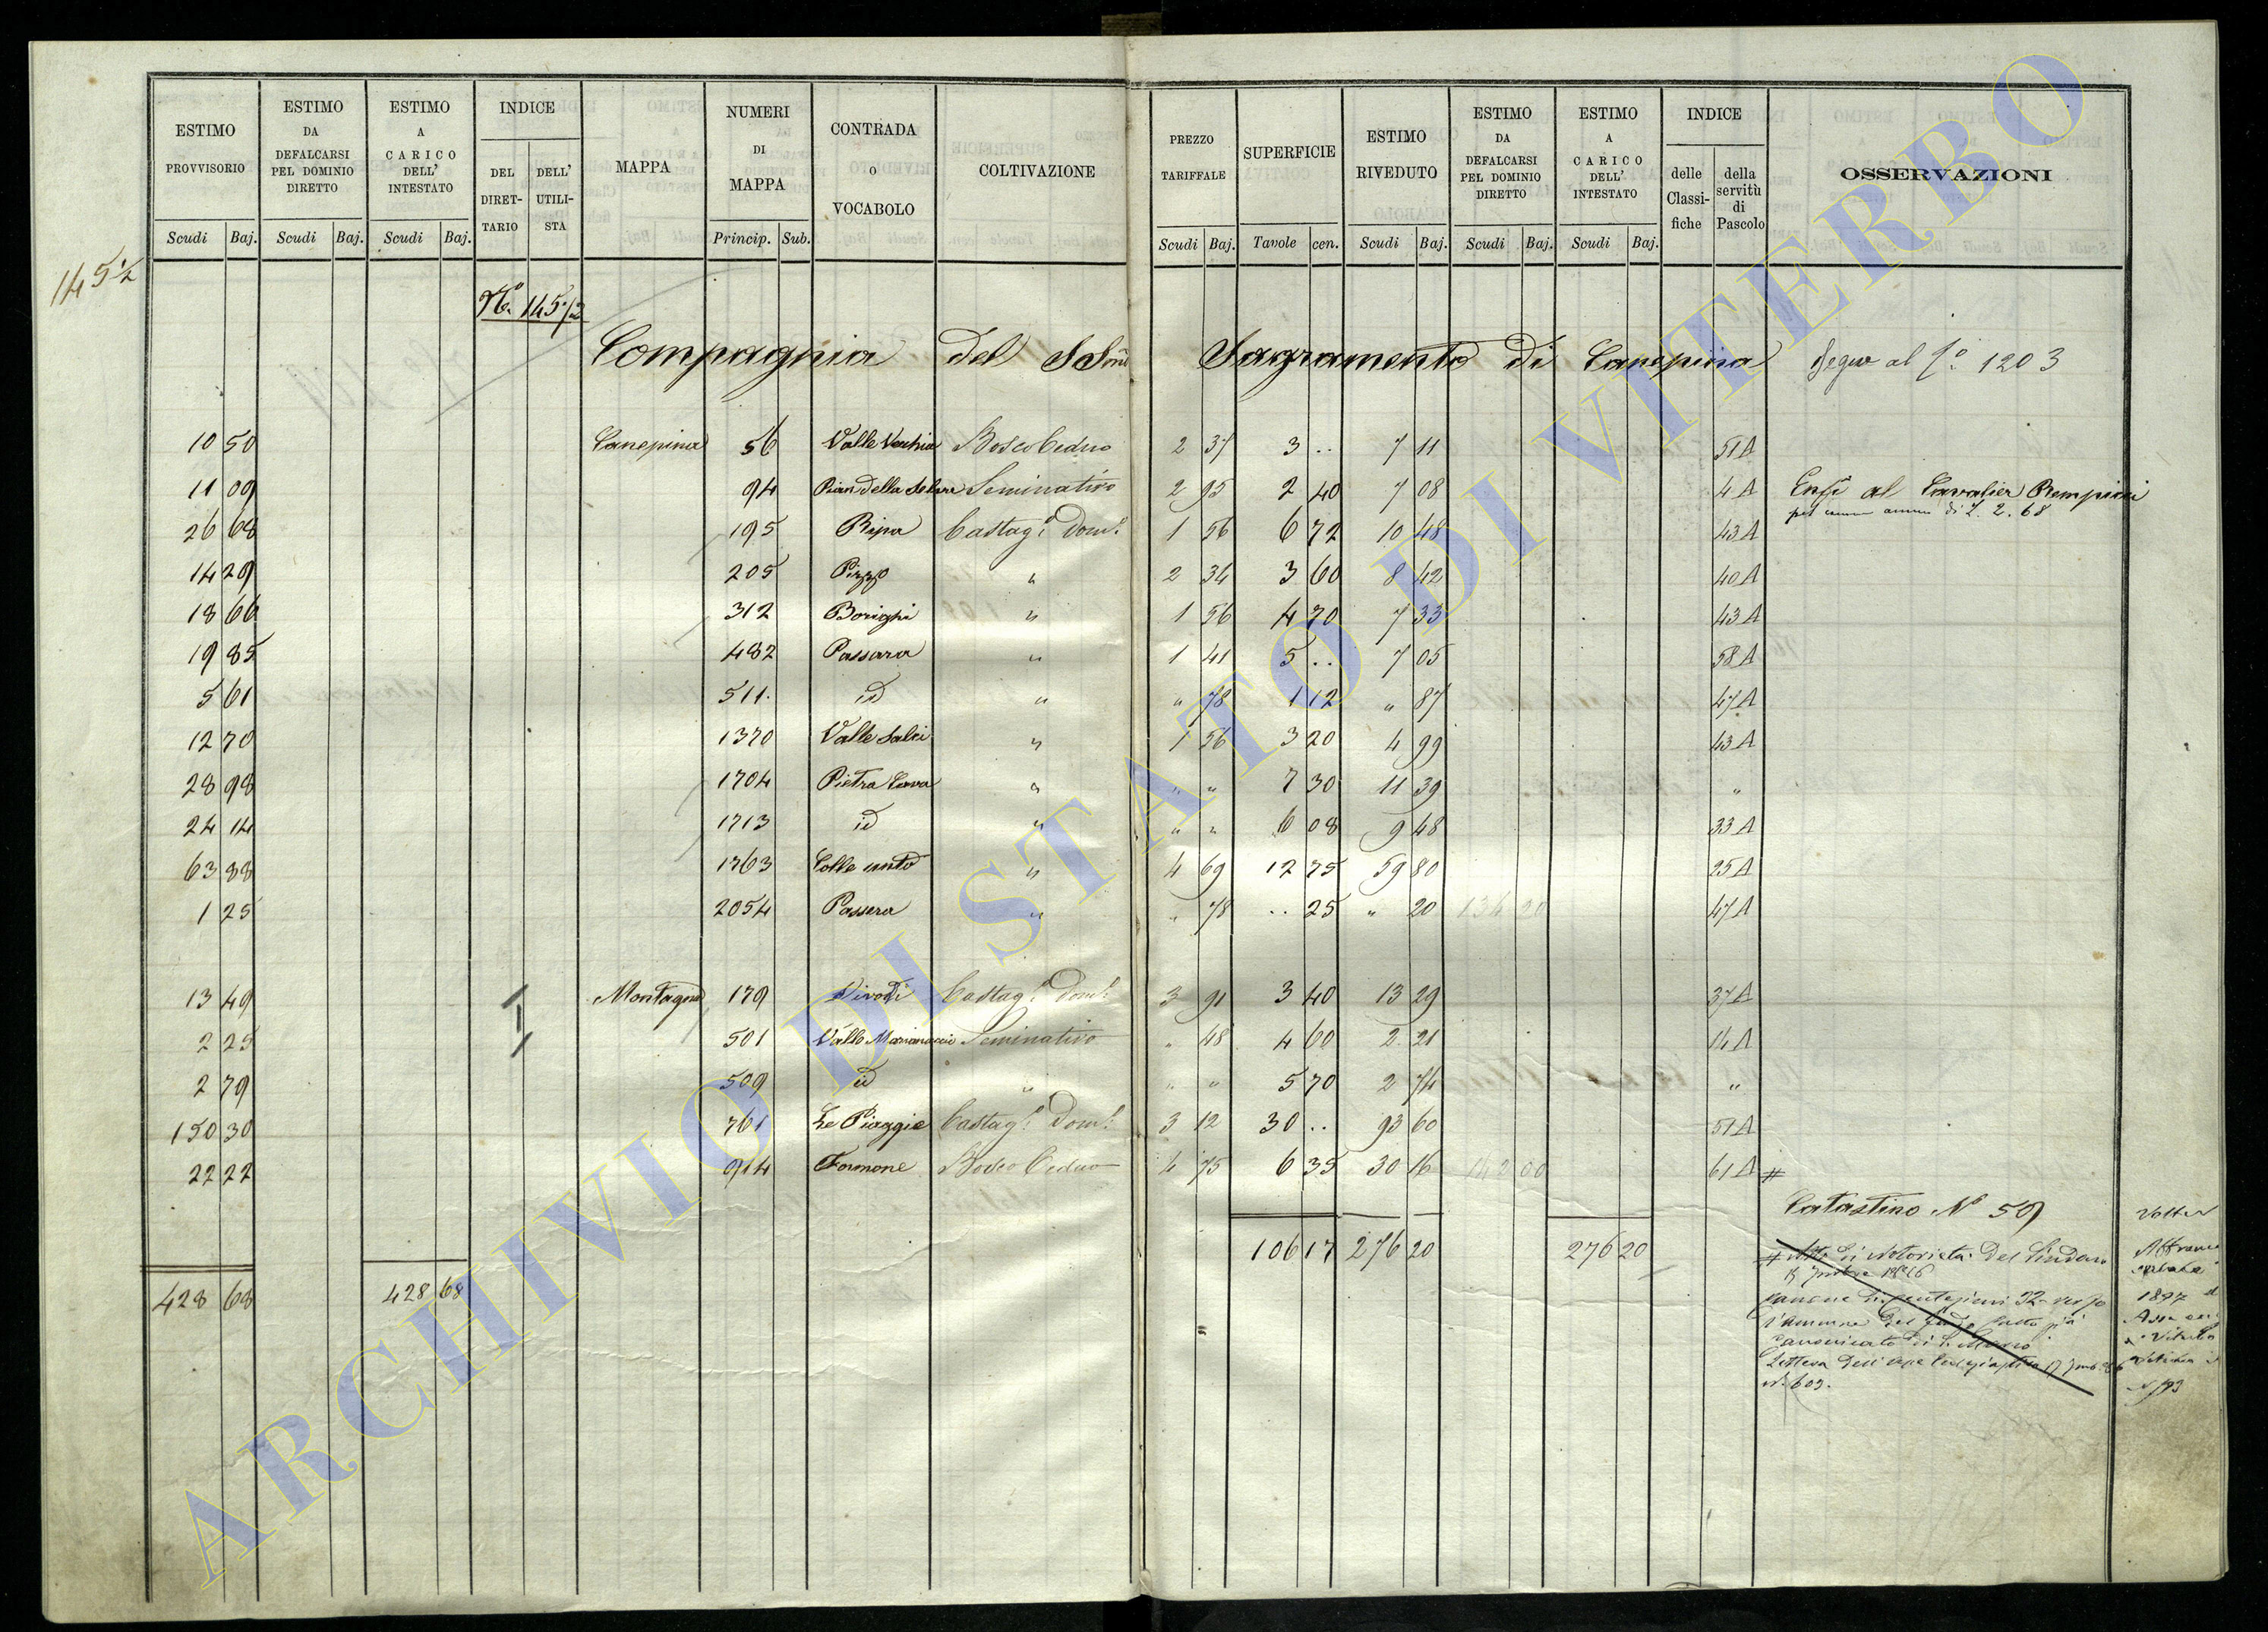 ESTIMO PROVVISORIO Scudi Baj. ESTIMO DA DEFALCARSI PEL DOMINIO DIRETTO Scudi Baj. ESTIMO A CARICO DELL' INTESTATO Scudi Baj. INDICE DEL DIRET-TARIO DELL' UTILI-STA MAPPA NUMERI DI MAPPA Princip. Sub. CONTRADA O VOCABOLO COLTIVAZIONE PREZZO TARIFFALE Scudi Baj. SUPERFICIE Tavole cen. ESTIMO RIVEDUTO Scudi Baj. ESTIMO DA DEFALCARSI PEL DOMINIO DIRETTO Scudi Baj. ESTIMO A CARICO DELL' INTESTATO Scudi Baj. INDICE delle Classi-fiche della servitù di Pascolo OSSERVAZIONI
145½
No. 145/2
Compagnia del SSmo Sagramento di Canepina Segue al fo. 1203
10 50 Canepina 56 Valle Vecchia Bosco Ceduo 2 37 3 .. 7 11 51 A
11 09 94 Pian della Selva Seminativo 2 95 2 40 7 08 4 A Enfi al Cavalier Pempini
annuo di 2.68
26 68 195 Ripa Castag. Dom. 1 56 6 72 10 48 43 A
14 29 205 Pizzo " 2 34 3 60 8 42 40 A
18 66 312 Borighi " 1 56 4 70 7 33 43 A
19 85 482 Passara " 1 41 5 .. 7 05 58 A
5 61 511 id " " 78 1 12 " 87 47 A
12 70 1370 Valle Salci " 1 56 3 20 4 99 43 A
28 98 1704 Pietra Cava " " " 7 30 11 39 "
24 14 1713 id " " " 6 08 9 48 33 A
63 88 1763 Colle unto " 4 69 12 75 59 80 25 A
1 25 2054 Passera " " 78 .. 25 " 20 134 20 47 A
13 49 Montagna 179 Vivodi Castag. Dom. 3 91 3 40 13 29 37 A
2 25 501 Valle Marianaccio Seminativo " 48 4 60 2 21 14 A
2 79 509 id " " " 5 70 2 74 "
150 30 761 Le Piaggie Castag. Dom. 3 12 30 .. 93 60 51 A
22 22 914 Formone Bosco Ceduo 4 75 6 35 30 16 142 00 61 A #
Catastino No 59
106 17 276 20 276 20
428 68 428 68
# Atto di Notorietà del Sindaco
Canone di
Canonicato di
Lettera dell'
N. 603.
1897
ARCHIVIO DI STATO DI VITERBO